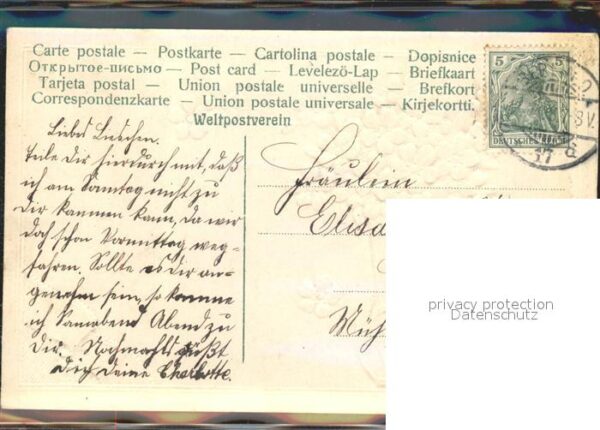 Carte postale — Postkarte — Cartolina postale — Dopisnice
Открытое-письмо — Post card — Levelező-Lap — Briefkaart
Tarjeta postal — Union postale universelle — Brefkort
Correspondenzkarte — Union postale universale — Kirjekortti.
Weltpostverein
5 5
DEUTSCHES REICH
Liebes Lieschen.
Teile Dir hierdurch mit, daß
ich am Sonntag nicht zu
Dir kommen kann, da wir
doch schon Vormittag weg-
fahren. Sollte es Dir an-
genehm sein, so komme
ich Sonnabend Abend zu
Dir. Nochmals grüßt
Dich Deine Charlotte.
Fräulein
Elisa
Müh
privacy protection
Datenschutz